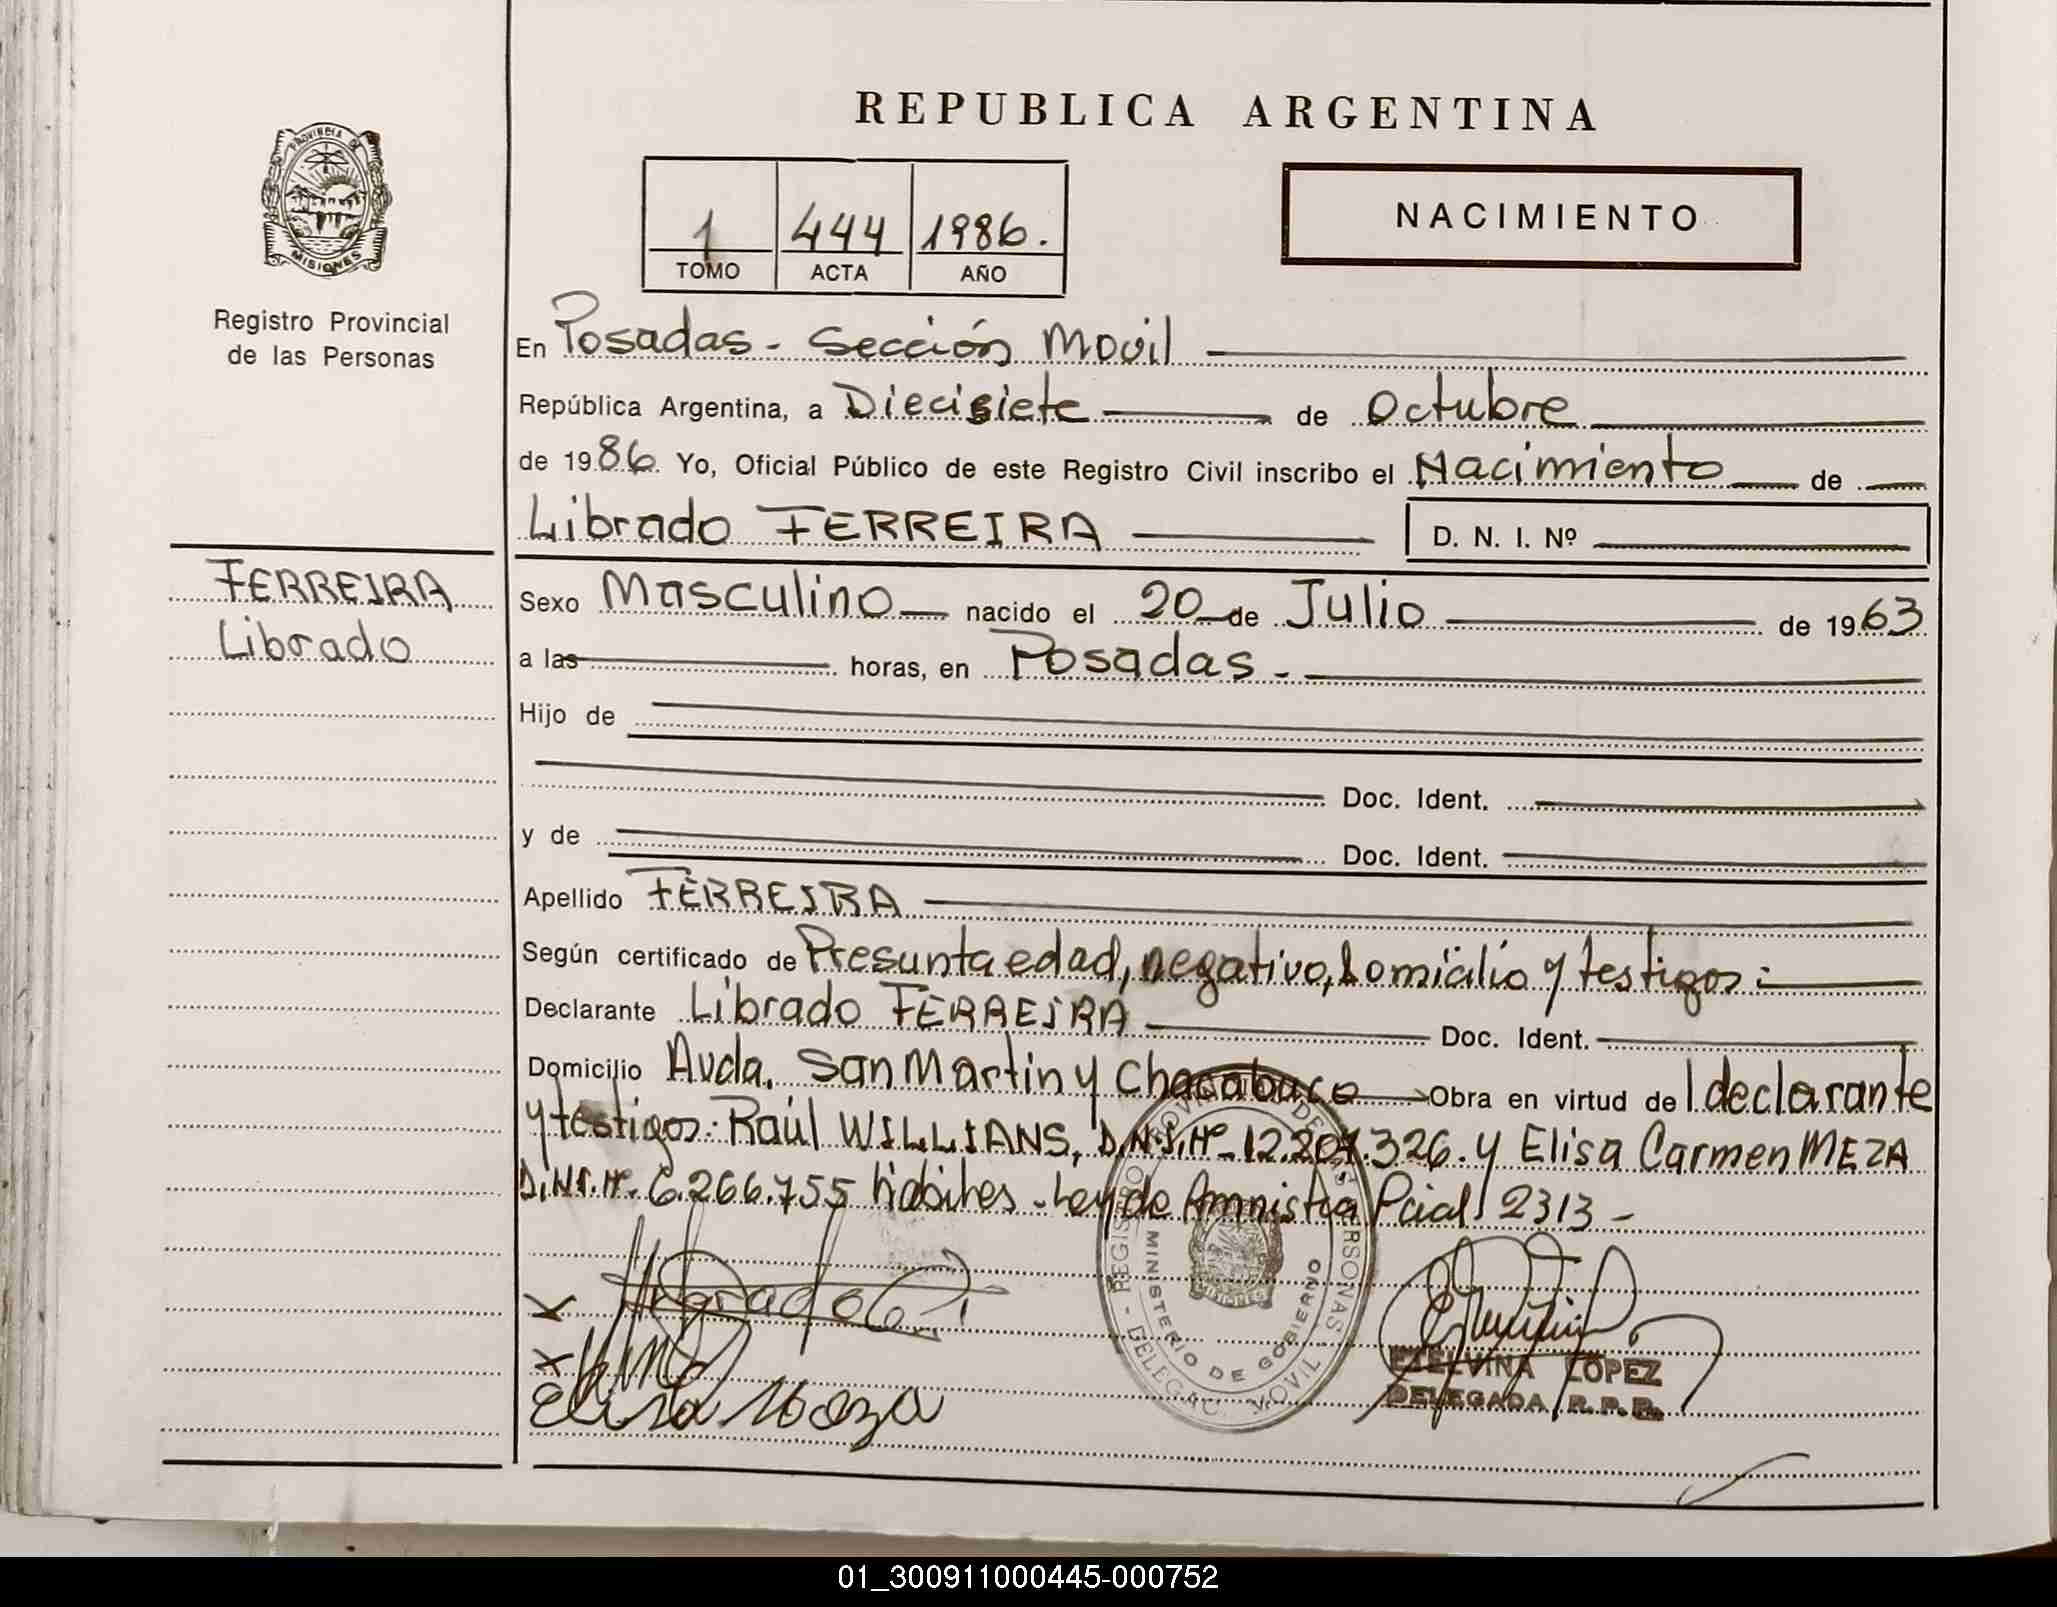 REPUBLICA ARGENTINA
PROVINCIA DE
MISIONES
1 444 1986.
TOMO ACTA AÑO
NACIMIENTO
Registro Provincial
de las Personas
En Posadas - Sección Movil
República Argentina, a Diecisiete de Octubre
de 1986. Yo, Oficial Público de este Registro Civil inscribo el Nacimiento de
Librado FERREIRA D. N. I. Nº
FERREIRA
Librado
Sexo Masculino nacido el 20 de Julio de 1963
a las horas, en Posadas -
Hijo de
Doc. Ident.
y de Doc. Ident.
Apellido FERREIRA
Según certificado de Presunta edad, negativo, domicilio y testigos:
Declarante Librado FERREIRA Doc. Ident.
Domicilio Avda. San Martin y Chacabuco Obra en virtud de l declarante
y testigos: Raúl WILLIANS, D.N.I.Nº- 12.207.326. y Elisa Carmen MEZA
D.N.I.Nº. 6.266.755 hábiles - Ley de Amnistia Pcial 2313 -
REGISTRO PROVINCIAL DE LAS PERSONAS - DELEGAC. MOVIL
MINISTERIO DE GOBIERNO
MISIONES
Elisa Meza
ETELVINA LOPEZ
DELEGADA R.P.P.
01_300911000445-000752